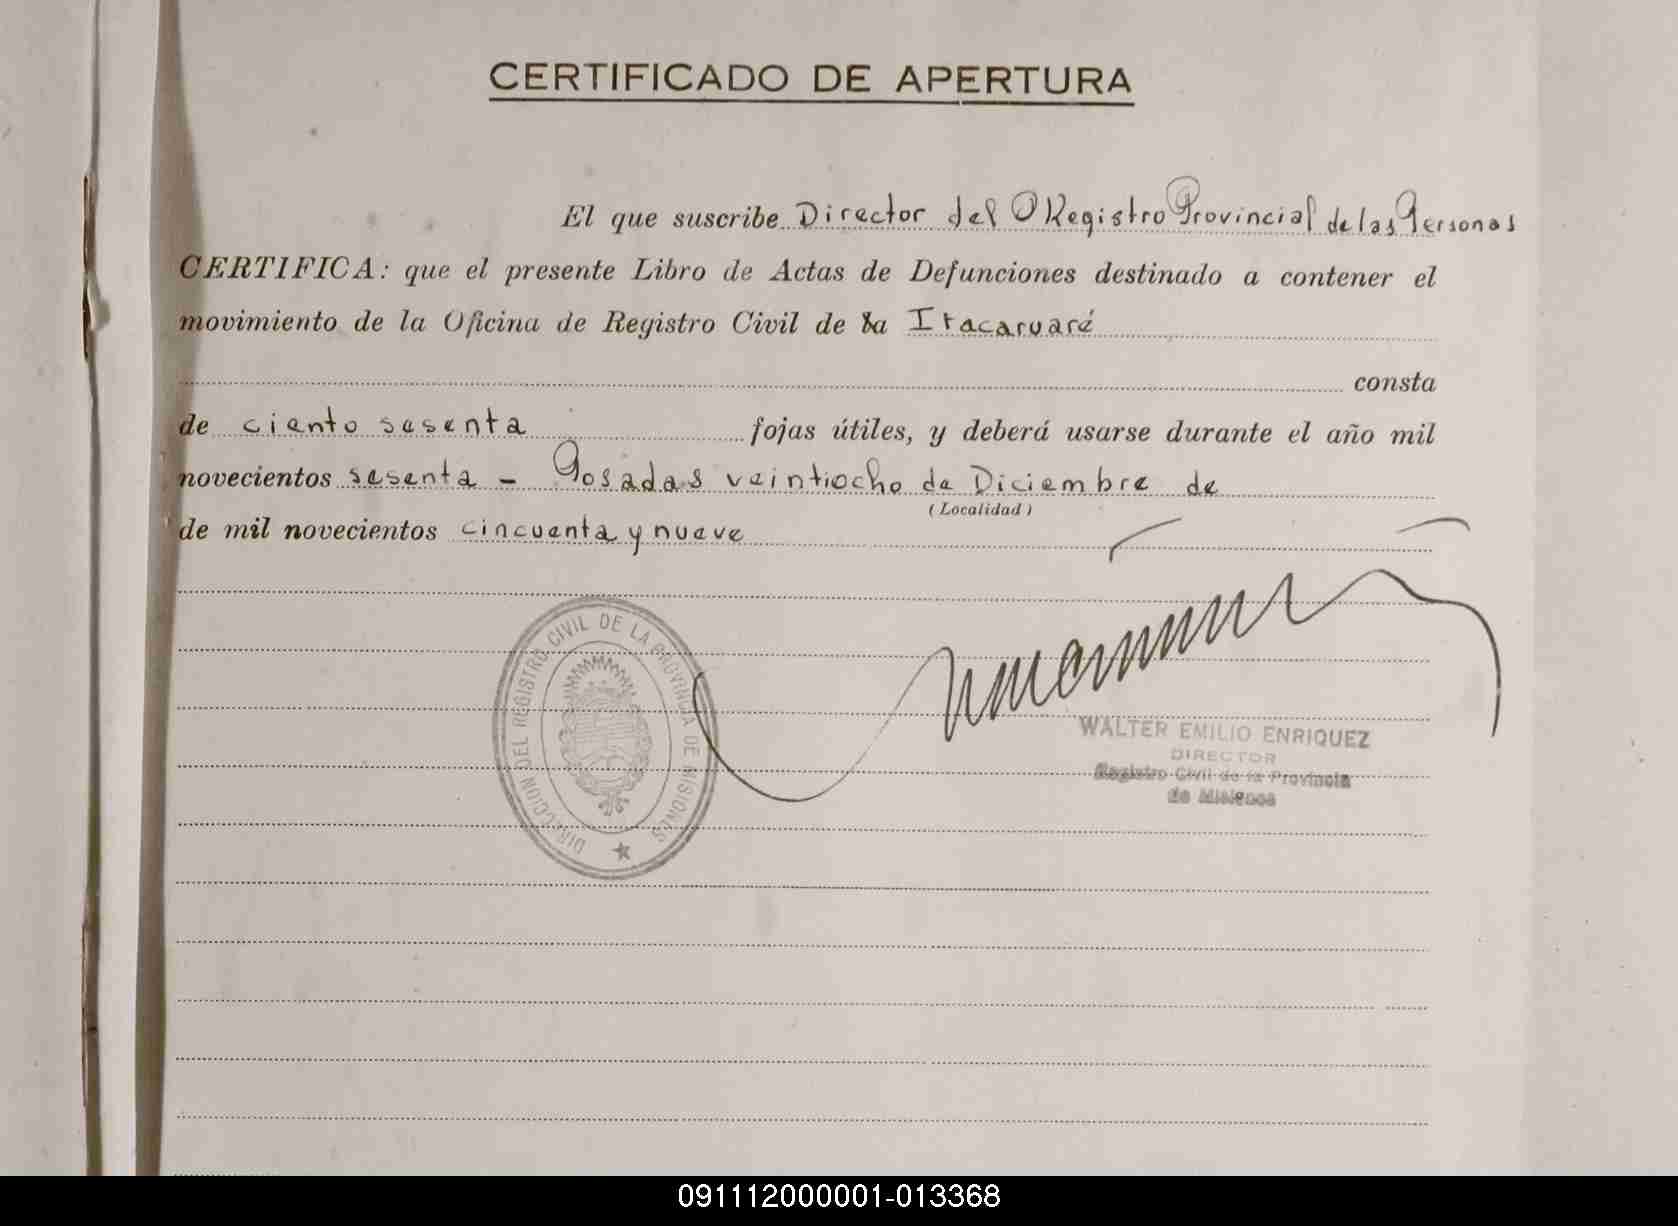 CERTIFICADO DE APERTURA
El que suscribe Director del Registro Provincial de las Personas
CERTIFICA: que el presente Libro de Actas de Defunciones destinado a contener el
movimiento de la Oficina de Registro Civil de la Itacaruaré
consta
de ciento sesenta fojas útiles, y deberá usarse durante el año mil
novecientos sesenta - Posadas veintiocho de Diciembre de
(Localidad)
de mil novecientos cincuenta y nueve
DIRECCION DEL REGISTRO CIVIL DE LA PROVINCIA DE MISIONES
WALTER EMILIO ENRIQUEZ
DIRECTOR
Registro Civil de la Provincia
de Misiones
091112000001-013368